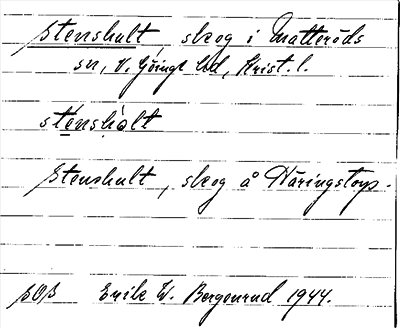 Stenshult, skog i Matteröds
sn, V. Göinge hd, Krist. l.
sténshòlt
Stenshult, skog å Häringstorp.
SOS Erik W. Bergenrud 1944.